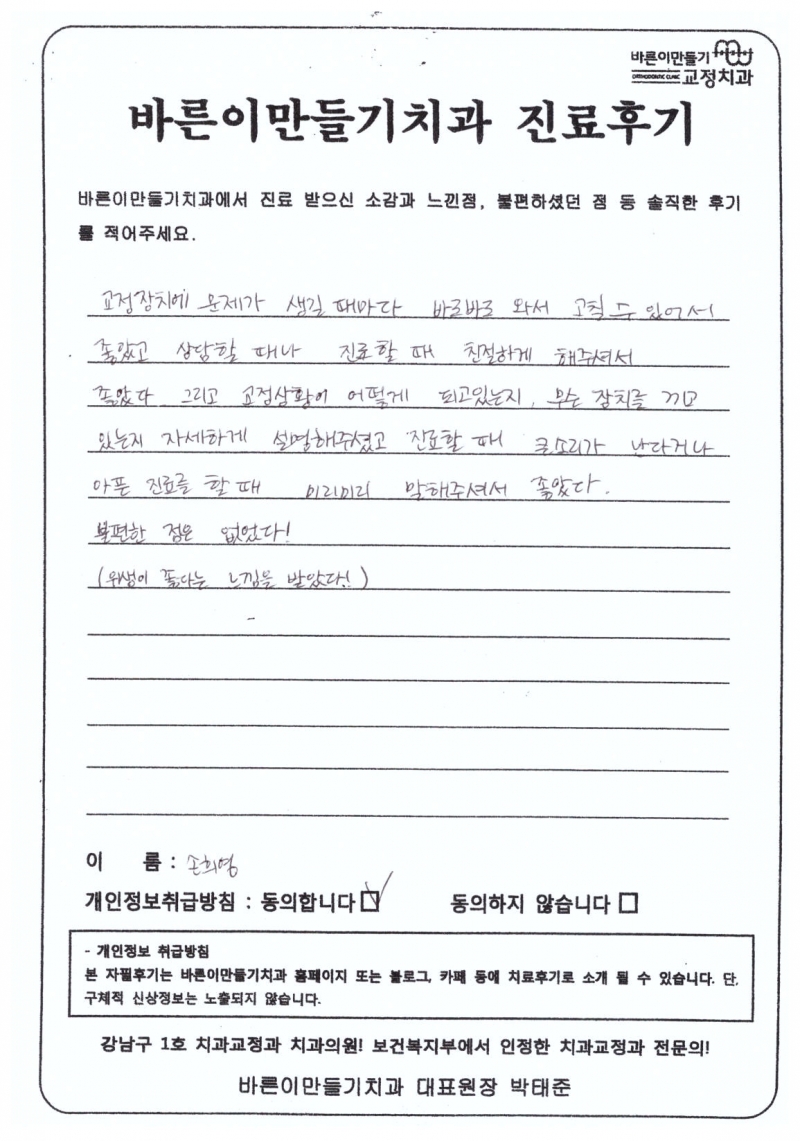 바른이만들기
ORTHODONTIC CLINIC 교정치과
바른이만들기치과 진료후기
바른이만들기치과에서 진료 받으신 소감과 느낀점, 불편하셨던 점 등 솔직한 후기
를 적어주세요.
교정장치에 문제가 생길 때마다 바로바로 와서 고칠 수 있어서
좋았고 상담할 때나 진료할 때 친절하게 해주셔서
좋았다 그리고 교정상황이 어떻게 되고있는지, 무슨 장치를 끼고
있는지 자세하게 설명해주셨고 진료할 때 큰소리가 난다거나
아픈 진료를 할 때 미리미리 말해주셔서 좋았다.
불편한 점은 없었다!
(위생이 좋다는 느낌을 받았다!)
이 름 : 손희영
개인정보취급방침 : 동의합니다 동의하지 않습니다
- 개인정보 취급방침
본 자필후기는 바른이만들기치과 홈페이지 또는 블로그, 카페 등에 치료후기로 소개 될 수 있습니다. 단,
구체적 신상정보는 노출되지 않습니다.
강남구 1호 치과교정과 치과의원! 보건복지부에서 인정한 치과교정과 전문의!
바른이만들기치과 대표원장 박태준